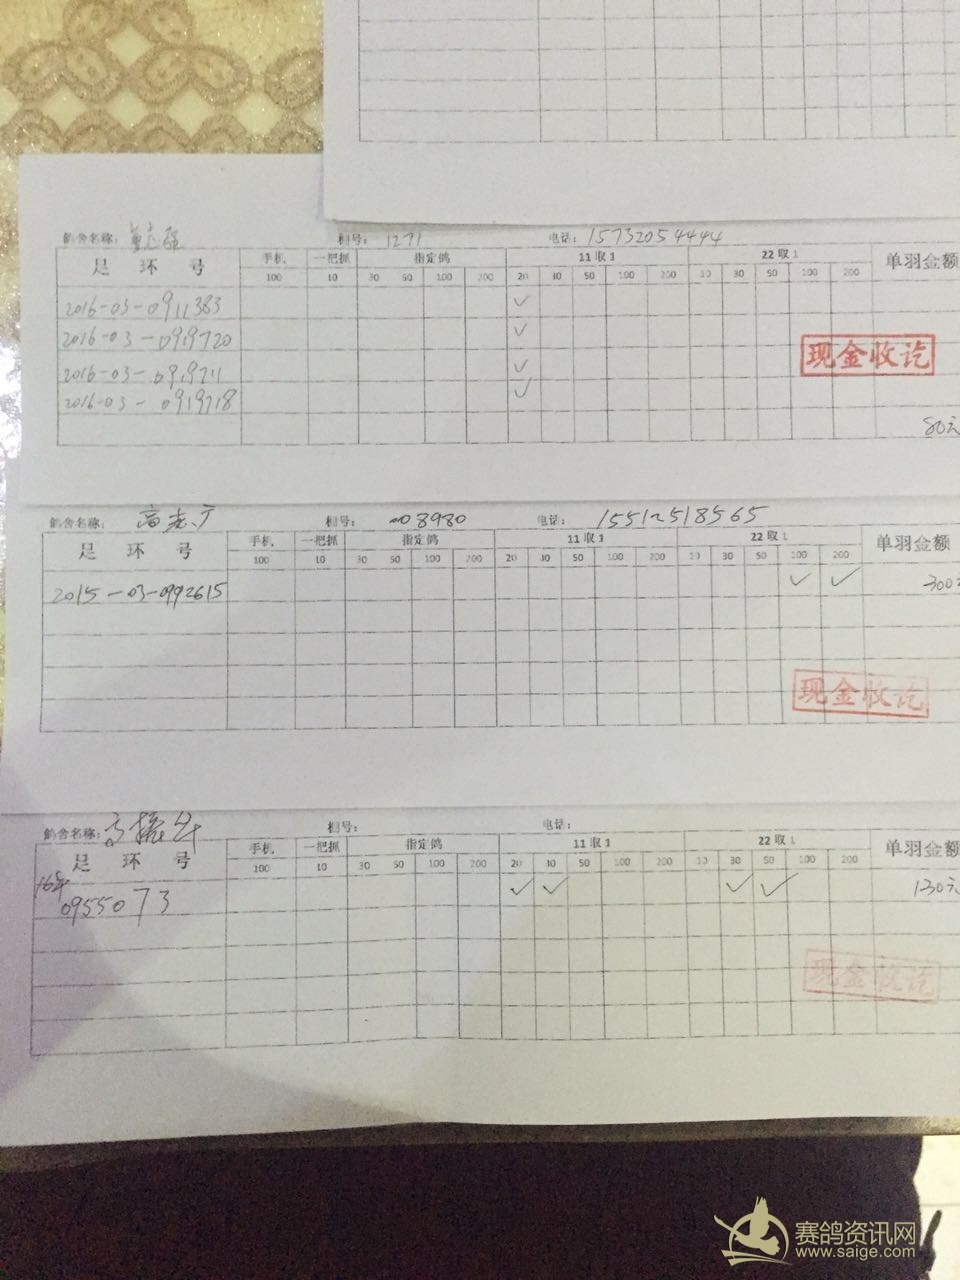 鸽舍名称： 棚号： 1291 电话： 15732054444
足 环 号 手机 一把抓 指定鸽 11取1 22取1 单羽金额
100 10 30 50 100 200 20 10 50 100 200 10 30 50 100 200
2016-03-0911383 ✓
2016-03-0919720 ✓
2016-03-0919711 ✓
2016-03-0919718 ✓
现金收讫
80元
鸽舍名称： 棚号： 8980 电话： 15512518565
足 环 号 手机 一把抓 指定鸽 11取1 22取1 单羽金额
100 10 30 50 100 200 20 10 50 100 200 10 30 50 100 200
2015-03-0992615 ✓ ✓ 300元
现金收讫
鸽舍名称： 棚号： 电话：
足 环 号 手机 一把抓 指定鸽 11取1 22取1 单羽金额
100 10 30 50 100 200 20 10 50 100 200 10 30 50 100 200
0955073 ✓ ✓ ✓ ✓ 130元
现金收讫
赛鸽资讯网
www.saige.com